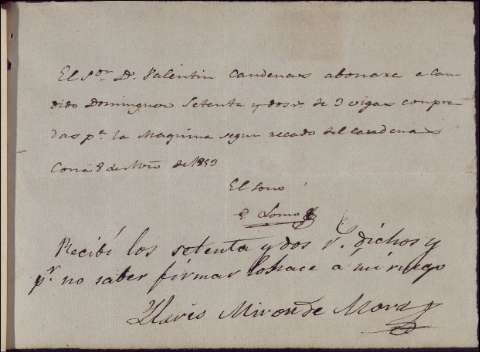 El Sor. Dn. Valentin Cardenas abonara a Can-
dido Dominguez Setenta y dos rs. de 3 vigas compra-
das pa. la Maquina segun recado del Cardenas
8 de de 1859
El
Recibí los setenta y dos rs. dichos y
pr. no saber firmar lo hace a mi ruego
Miron de Mora